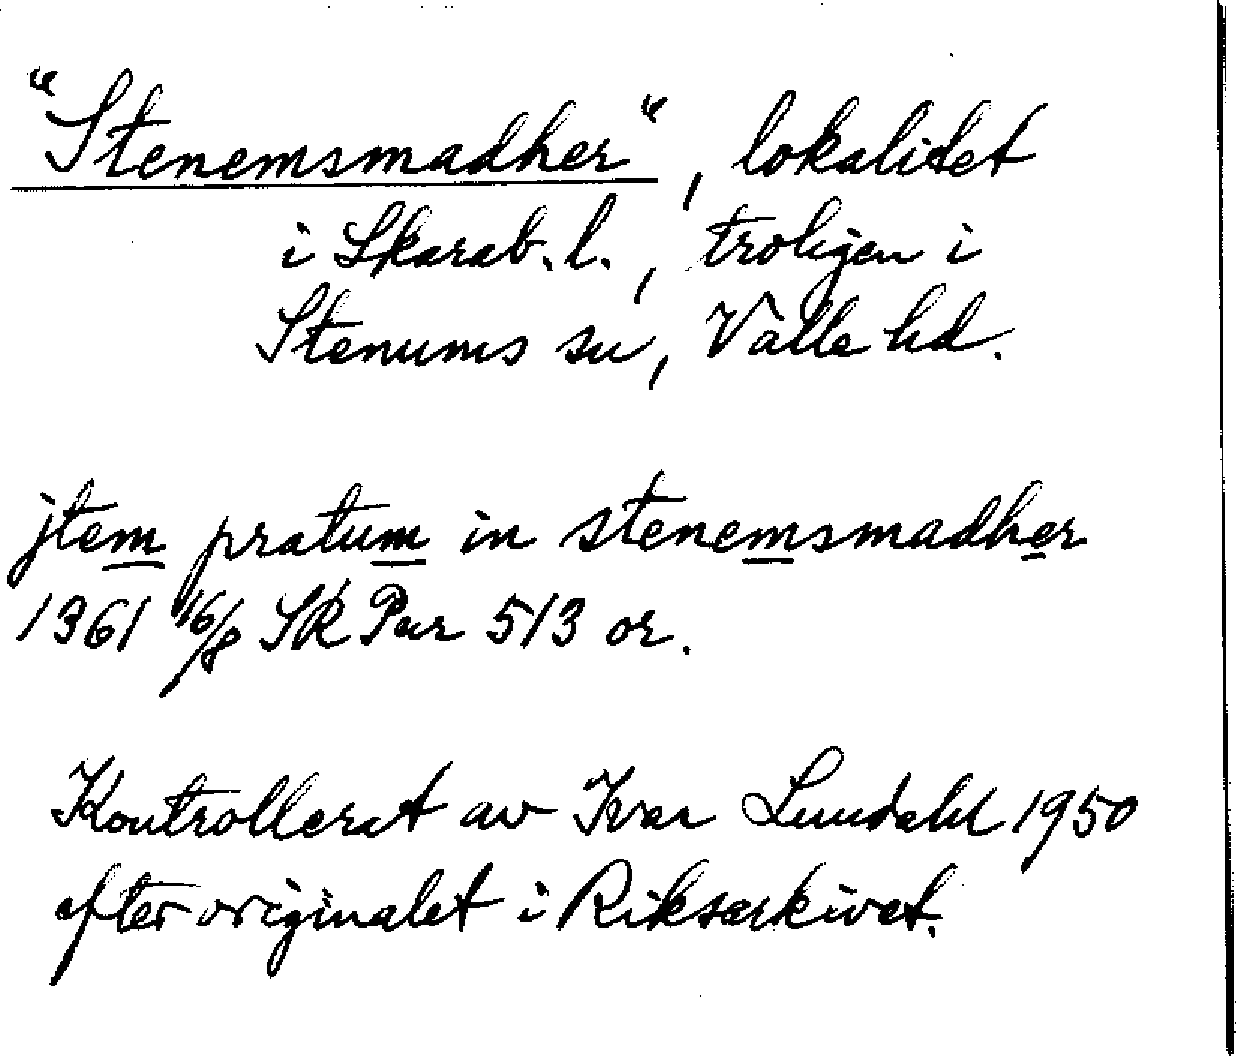 "Stenemsmadher", lokalitet
i Skarab. l., troligen i
Stenums sn, Valle hd.
jtem pratum in stenemsmadher
1361 16/8 SR Par 513 or.
Kontrollerat av Ivar Lundahl 1950
efter originalet i Riksarkivet.